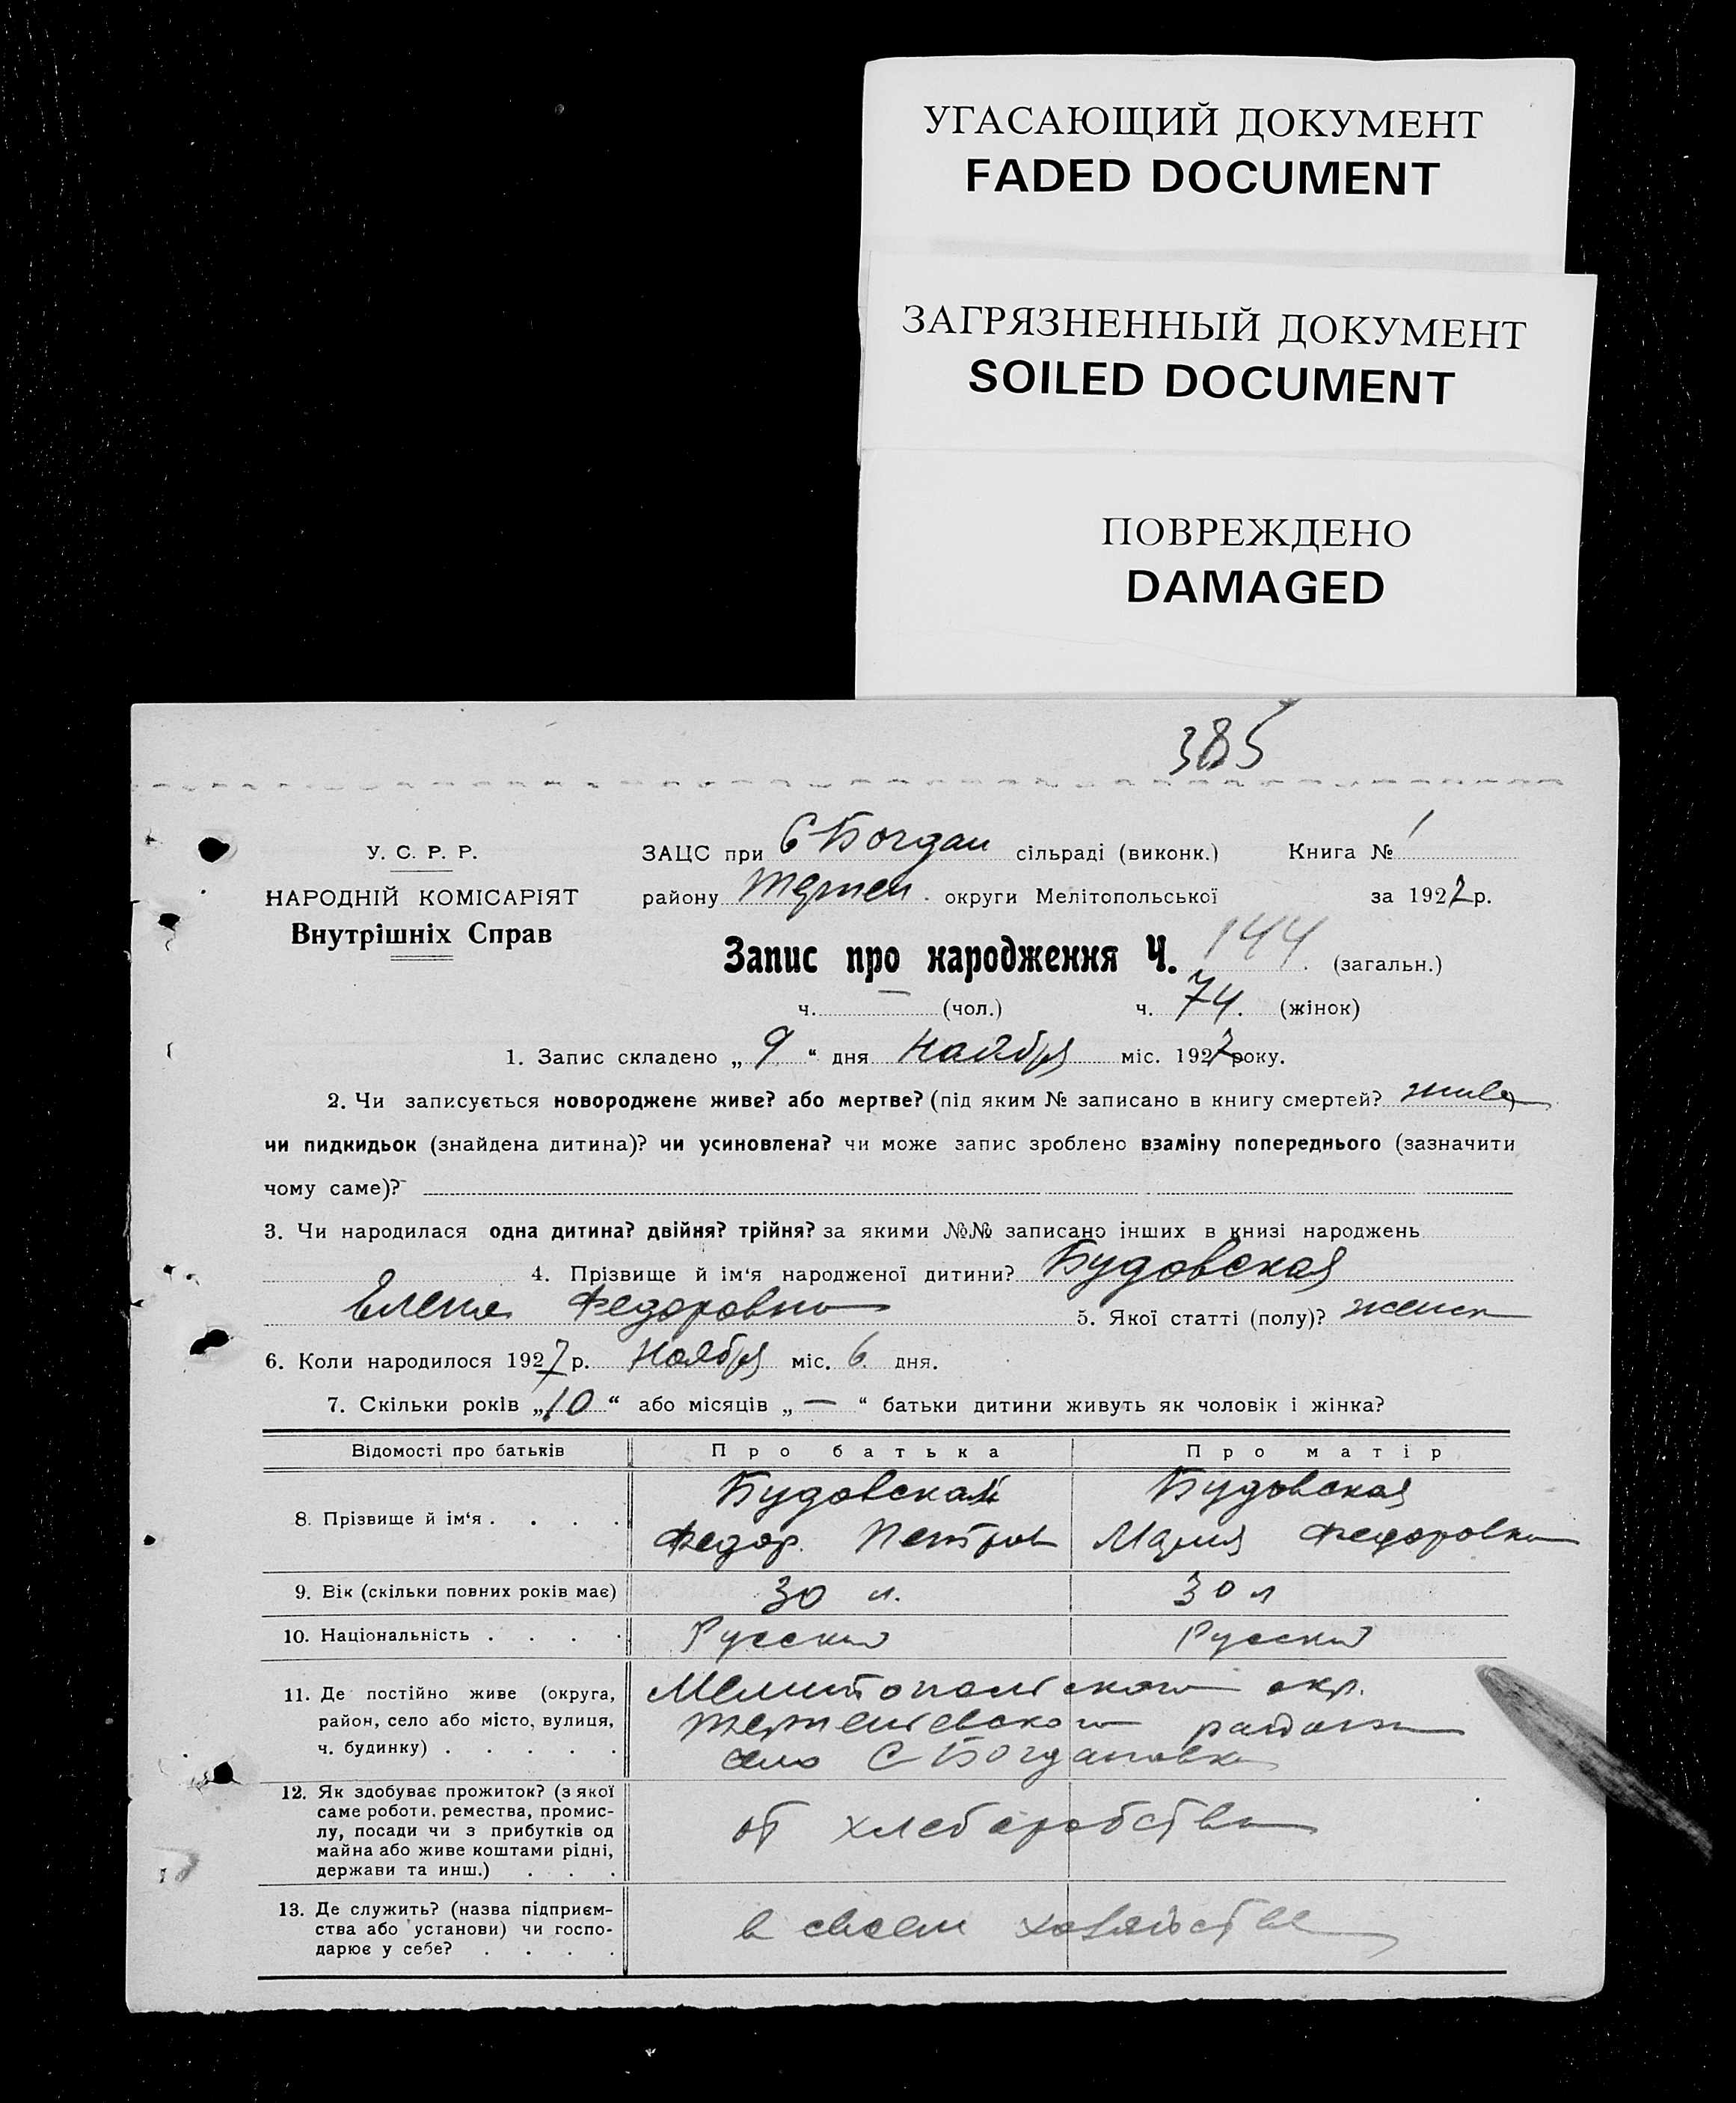 УГАСАЮЩИЙ ДОКУМЕНТ
FADED DOCUMENT
ЗАГРЯЗНЕННЫЙ ДОКУМЕНТ
SOILED DOCUMENT
ПОВРЕЖДЕНО
DAMAGED
385
У. С. Р. Р.
НАРОДНІЙ КОМІСАРІЯТ
Внутрішніх Справ
ЗАЦС при С Богдан сільраді (виконк.) Книга № 1
району округи Мелітопольської за 1927 р.
Запис про народження Ч. 144 (загальн.)
ч. — (чол.) ч. 74. (жінок)
1. Запис складено „ 9 “ дня Ноября міс. 1927 року.
2. Чи записується новороджене живе? або мертве? (під яким № записано в книгу смертей?
чи пидкидьок (знайдена дитина)? чи усиновлена? чи може запис зроблено взаміну попереднього (зазначити
чому саме)?
3. Чи народилася одна дитина? двійня? трійня? за якими №№ записано інших в книзі народжень
4. Прізвище й ім‘я народженої дитини? Будовская
Елена Федоровна 5. Якої статті (полу)? женск
6. Коли народилося 1927 р. Ноября міс. 6 дня.
7. Скільки років „10“ або місяців „ — “ батьки дитини живуть як чоловік і жінка?
Відомості про батьків Про батька Про матір
8. Прізвище й ім‘я . . . . Будовский Будовская
Федор Петров Мария Федоровна
9. Вік (скільки повних років має) 30 л. 30 л
10. Національність . . . . Русский Русский
11. Де постійно живе (округа, район, село або місто, вулиця, ч. будинку) . . . . . Мелитопольского окр.
района
село С Богдановка
12. Як здобуває прожиток? (з якої
саме роботи, ремества, промис-
лу, посади чи з прибутків од
майна або живе коштами рідні,
держави та инш.) . . .
от хлеборобства
13. Де служить? (назва підприєм-
ства або установи) чи госпо-
дарює у себе? . . . .
в своем хозяйстве